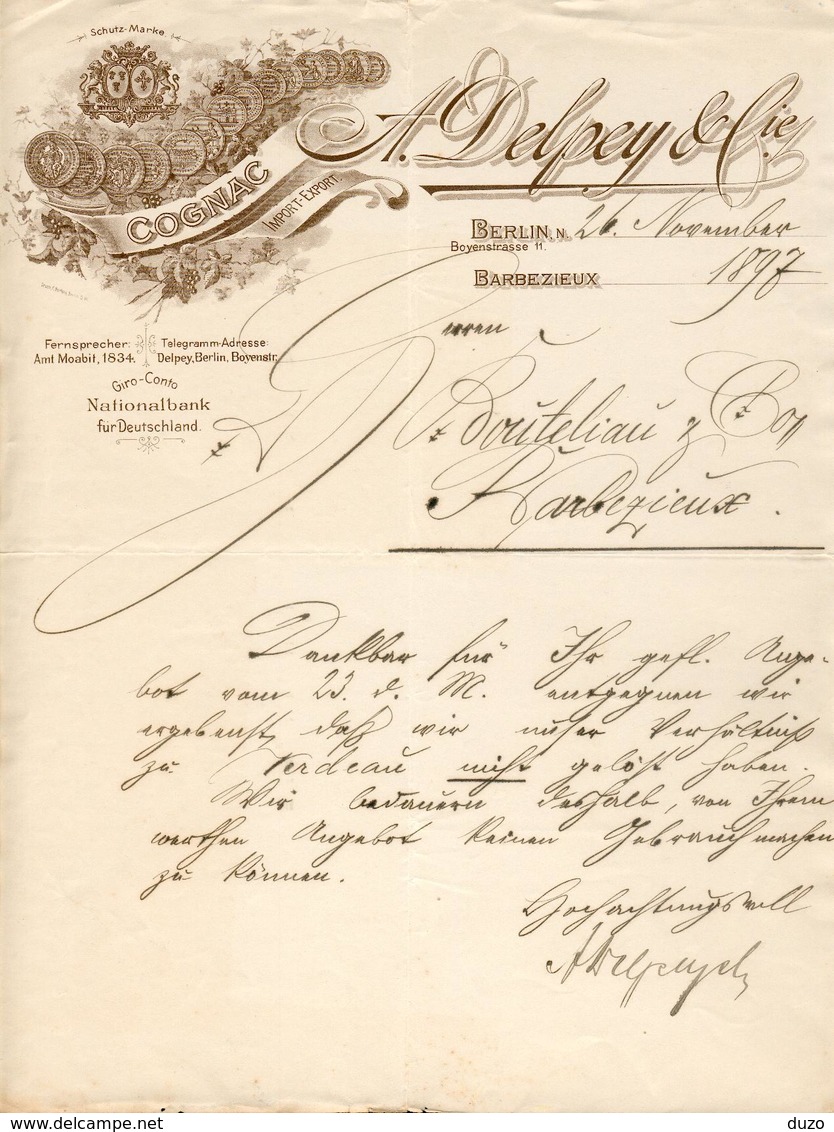 Schutz-Marke
COGNAC
IMPORT-EXPORT.
A. Delpey & Cie
BERLIN N. 26. November
Boyenstrasse 11.
BARBEZIEUX 1897
Fernsprecher:
Amt Moabit, 1834.
Telegramm-Adresse:
Delpey, Berlin, Boyenstr.
Giro-Conto
Nationalbank
für Deutschland.
Herren
Bouteliau & Co
Barbezieux.
Dankbar für Ihr gefl. Ange-
bot vom 23. d. M. entgegnen wir
ergebenst, daß wir unser Verhältniß
zu Verdeau nicht gelöst haben.
Wir bedauern deshalb, von Ihrem
werthen Angebot keinen Gebrauch machen
zu können.
Hochachtungsvoll
ADelpey
delcampe.net
duzo